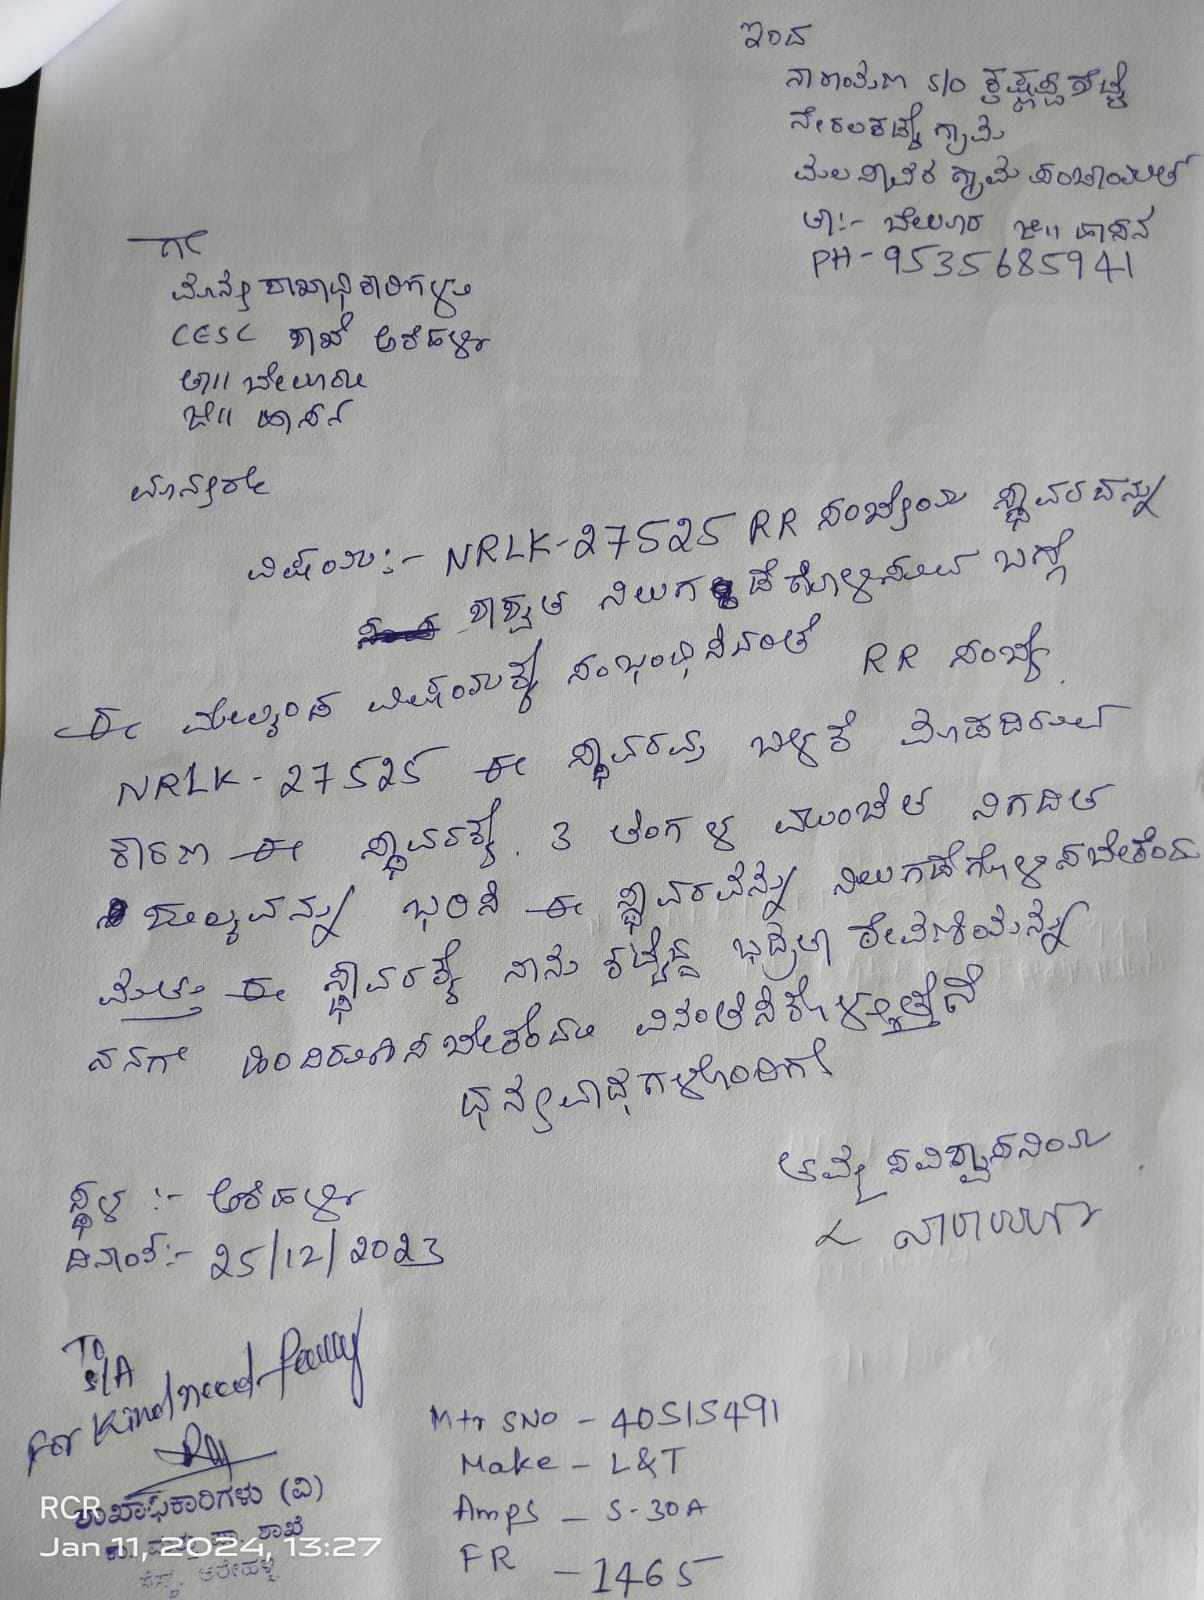 ಇಂದ
ನಾರಾಯಣ S/O ಕೃಷ್ಣಪ್ಪಶೆಟ್ಟಿ
ನೇರಲಕಟ್ಟೆ ಗ್ರಾಮ
ಮಲಸಾವರ ಗ್ರಾಮ ಪಂಚಾಯಿತ್
ತಾ:- ಬೇಲೂರ ಜಿ॥ ಹಾಸನ
PH-9535685941
ಗೆ
ಮಾನ್ಯ ಶಾಖಾಧಿಕಾರಿಗಳು
CESC ಶಾಖೆ ಅರೆಹಳ್ಳಿ
ತಾ॥ ಬೇಲೂರು
ಜಿ॥ ಹಾಸನ
ಮಾನ್ಯರೇ
ವಿಷಯ:- NRLK-27525 RR ಸಂಖ್ಯೆಯ ಸ್ಥಾವರವನ್ನು
ಶಾಶ್ವತ ನಿಲುಗಡೆಗೊಳಿಸುವ ಬಗ್ಗೆ
ಈ ಮೇಲ್ಕಂಡ ವಿಷಯಕ್ಕೆ ಸಂಬಂಧಿಸಿದಂತೆ RR ಸಂಖ್ಯೆ
NRLK-27525 ಈ ಸ್ಥಾವರವು ಬಳಕೆ ಮಾಡದಿರುವ
ಕಾರಣ ಈ ಸ್ಥಾವರಕ್ಕೆ 3 ತಿಂಗಳ ಮುಂಚಿತ ನಿಗದಿತ
ಶುಲ್ಕವನ್ನು ಭರಿಸಿ ಈ ಸ್ಥಾವರವನ್ನು ನಿಲುಗಡೆಗೊಳಿಸಬೇಕೆಂದು
ಮತ್ತು ಈ ಸ್ಥಾವರಕ್ಕೆ ನಾನು ಕಟ್ಟಿದ್ದ ಭದ್ರತಾ ಠೇವಣಿಯನ್ನು
ನನಗೆ ಹಿಂದಿರುಗಿಸಬೇಕೆಂದು ವಿನಂತಿಸಿಕೊಳ್ಳುತ್ತೇನೆ
ಧನ್ಯವಾದಗಳೊಂದಿಗೆ
ತಮ್ಮ ನವಿಶ್ವಾಸನಿಯ
ನಾರಾಯಣ
ಸ್ಥಳ :- ಅರೆಹಳ್ಳಿ
ದಿನಾಂಕ:- 25/12/2023
To
S/A
For Kind need
ಶಾಖಾಧಿಕಾರಿಗಳು (ವಿ)
ಶಾಖೆ
ಸೆಸ್ಕ್, ಅರೇಹಳ್ಳಿ
Mtr SNO - 40515491
Make - L&T
Amps - 5-30A
FR - 1465
RCR
Jan 11, 2024, 13:27